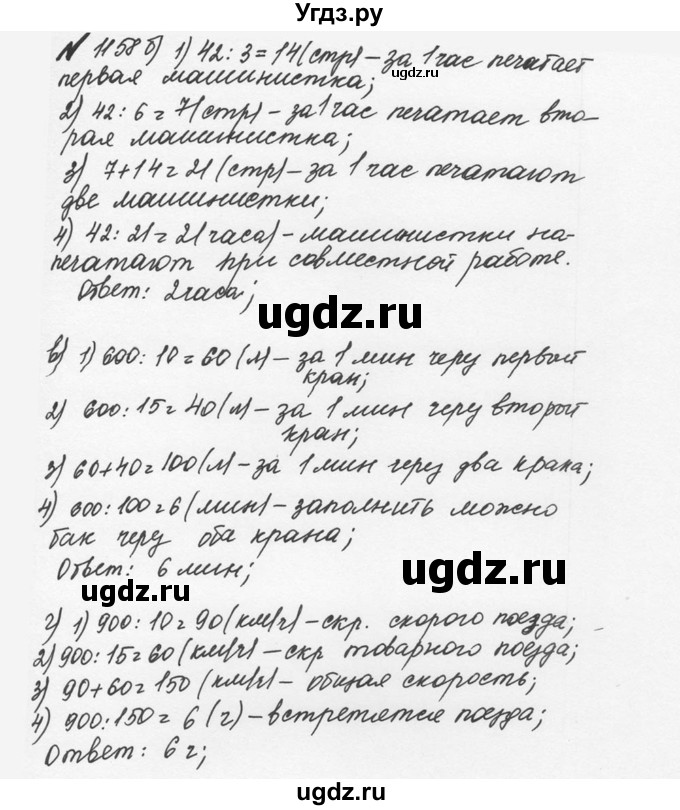 Угдз.ру
№ 1158 б) 1) 42 : 3 = 14 (стр) – за 1 час печатает
ugdz.ru
первая машинистка;
2) 42 : 6 = 7 (стр) – за 1 час печатает вто-
ugdz.ru
рая машинистка;
3) 7 + 14 = 21 (стр) – за 1 час печатают
две машинистки;
4) 42 : 21 = 2 (часа) – машинистки на-
печатают при совместной работе.
Ответ: 2 часа;
ugdz.ru
в) 1) 600 : 10 = 60 (л) – за 1 мин черу первый
кран;
2) 600 : 15 = 40 (л) – за 1 мин черу второй
кран;
3) 60 + 40 = 100 (л) – за 1 мин черу два крана;
4) 600 : 100 = 6 (мин) – заполнить можно
бак черу оба крана;
Ответ: 6 мин;
ugdz.ru
ugdz.ru
г) 1) 900 : 10 = 90 (км/ч) – скр. скорого поезда;
2) 900 : 15 = 60 (км/ч) – скр товарного поезда;
3) 90 + 60 = 150 (км/ч) – общая скорость;
4) 900 : 150 = 6 (г) – встретятся поезда;
Ответ: 6 г;
ugdz.ru
ugdz.ru